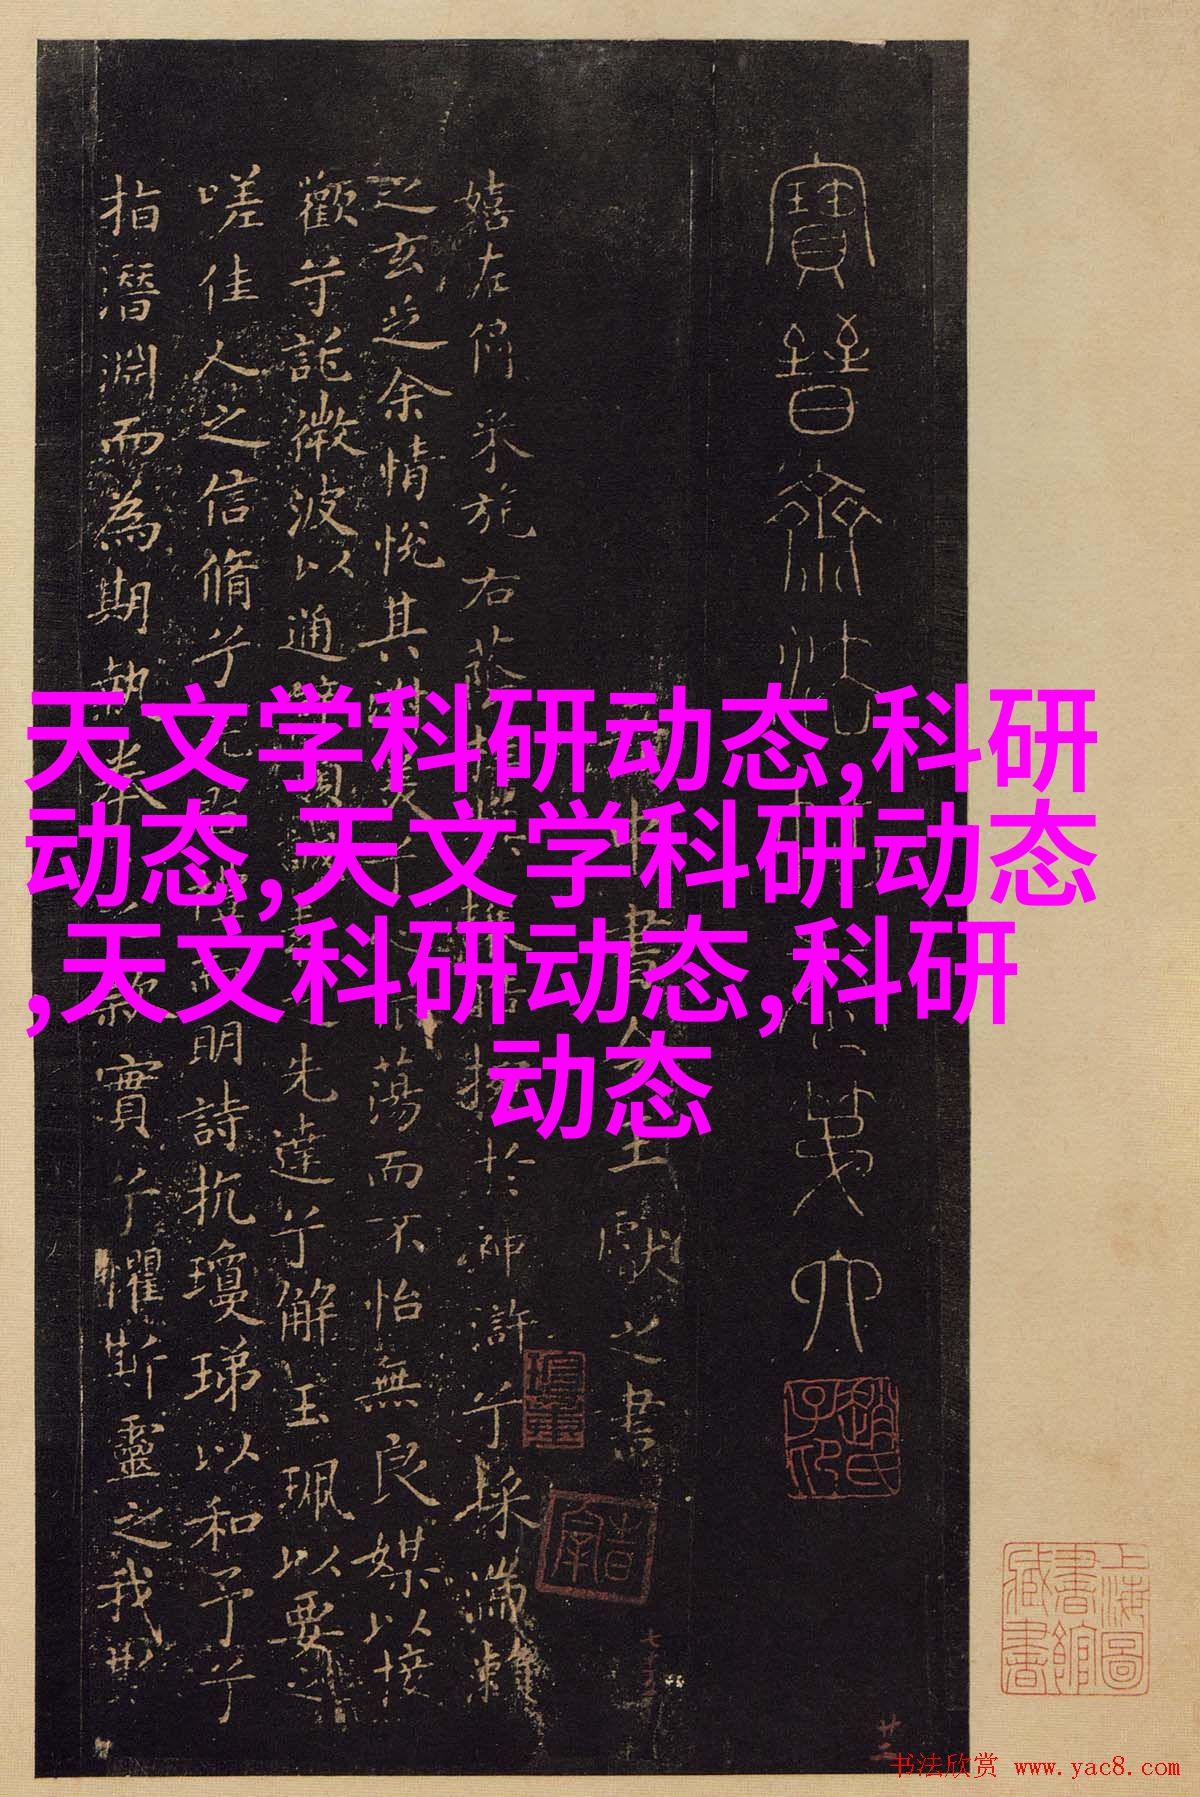 天文学科研动态,科研
动态,天文学科研动态
,天文科研动态,科研
动态
寶晉齋法六
中書令王獻之書
嬉左倚采旄右蔭於神滸兮採湍瀨
之玄芝余情悅其淑美兮蕩而不怡無良媒以接
歡兮託微波以通先達兮解玉珮以要之
嗟佳人之信脩兮明詩抗瓊珶以和予兮
指潛淵而為期執款實兮懼斯靈之我欺
上海圖書館藏書
七十五
廿二
书法欣赏 www.yac8.com